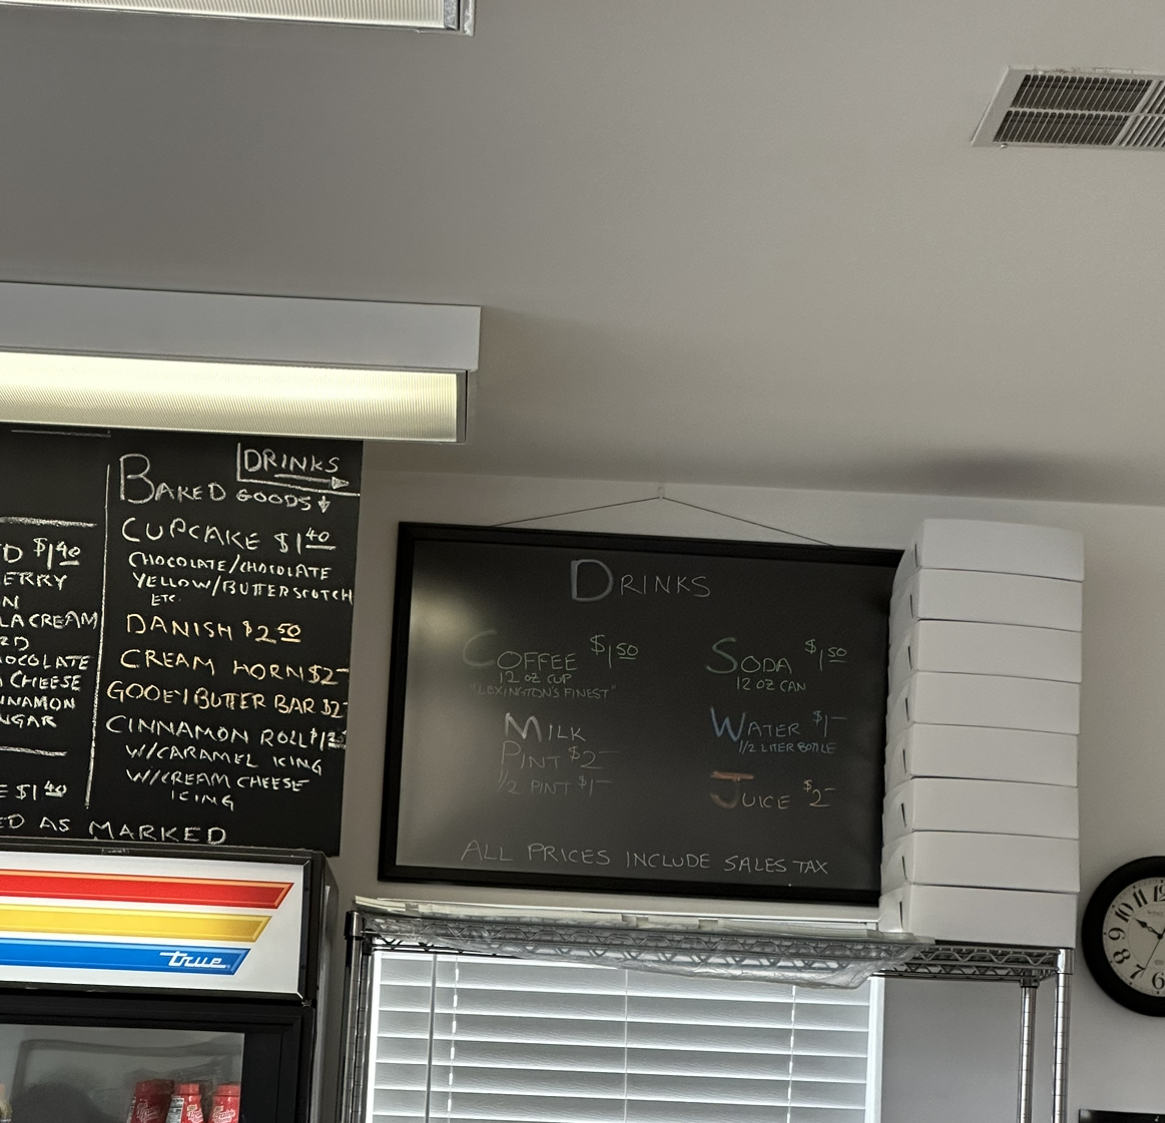 D $1 40
ERRY
N
LA CREAM
RD
OCOLATE
CHEESE
NNAMON
UGAR
E $1 40
ED AS MARKED
DRINKS
BAKED GOODS
CUPCAKE $1 40
CHOCOLATE/CHOCOLATE
YELLOW/BUTTERSCOTCH
ETC.
DANISH $2 50
CREAM HORN $2-
GOOEY BUTTER BAR $2-
CINNAMON ROLL
W/CARAMEL ICING
W/CREAM CHEESE
ICING
true
DRINKS
COFFEE $1 50
12 OZ CUP
"LEXINGTON'S FINEST"
MILK
PINT $2-
1/2 PINT $1-
SODA $1 50
12 OZ CAN
WATER $1-
1/2 LITER BOTTLE
JUICE $2-
ALL PRICES INCLUDE SALES TAX
12
11
10
9
8
7
6